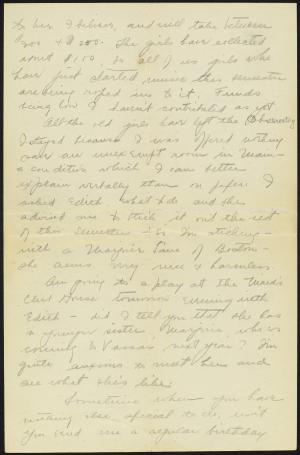 to her I believe, and will take between
200 + $250. The girls have collected
about $100. So all of us girls who
have just started music this semester
are being roped into it. Funds
being low I haven't contributed as yet
All the old girls have left the Observatory
I stayed because I was offered nothing
over an unexempt room in Main -
a condition which I can better
explain verbally than on paper. I
asked Edith what to do and she
advised me to stick it out the rest
of this semester - So I'm sticking -
with a Marjorie Lane of Boston -
she seems very nice & harmless.
Am going to a play at the Maid's
Club House tomorrow evening with
Edith - did I tell you that she has
a younger sister, Marjorie, who is
coming to Vassar next year? I'm
quite anxious to meet her and
see what she's like.
Sometime when you have
nothing else special to do, won't
you send me a regular birthday